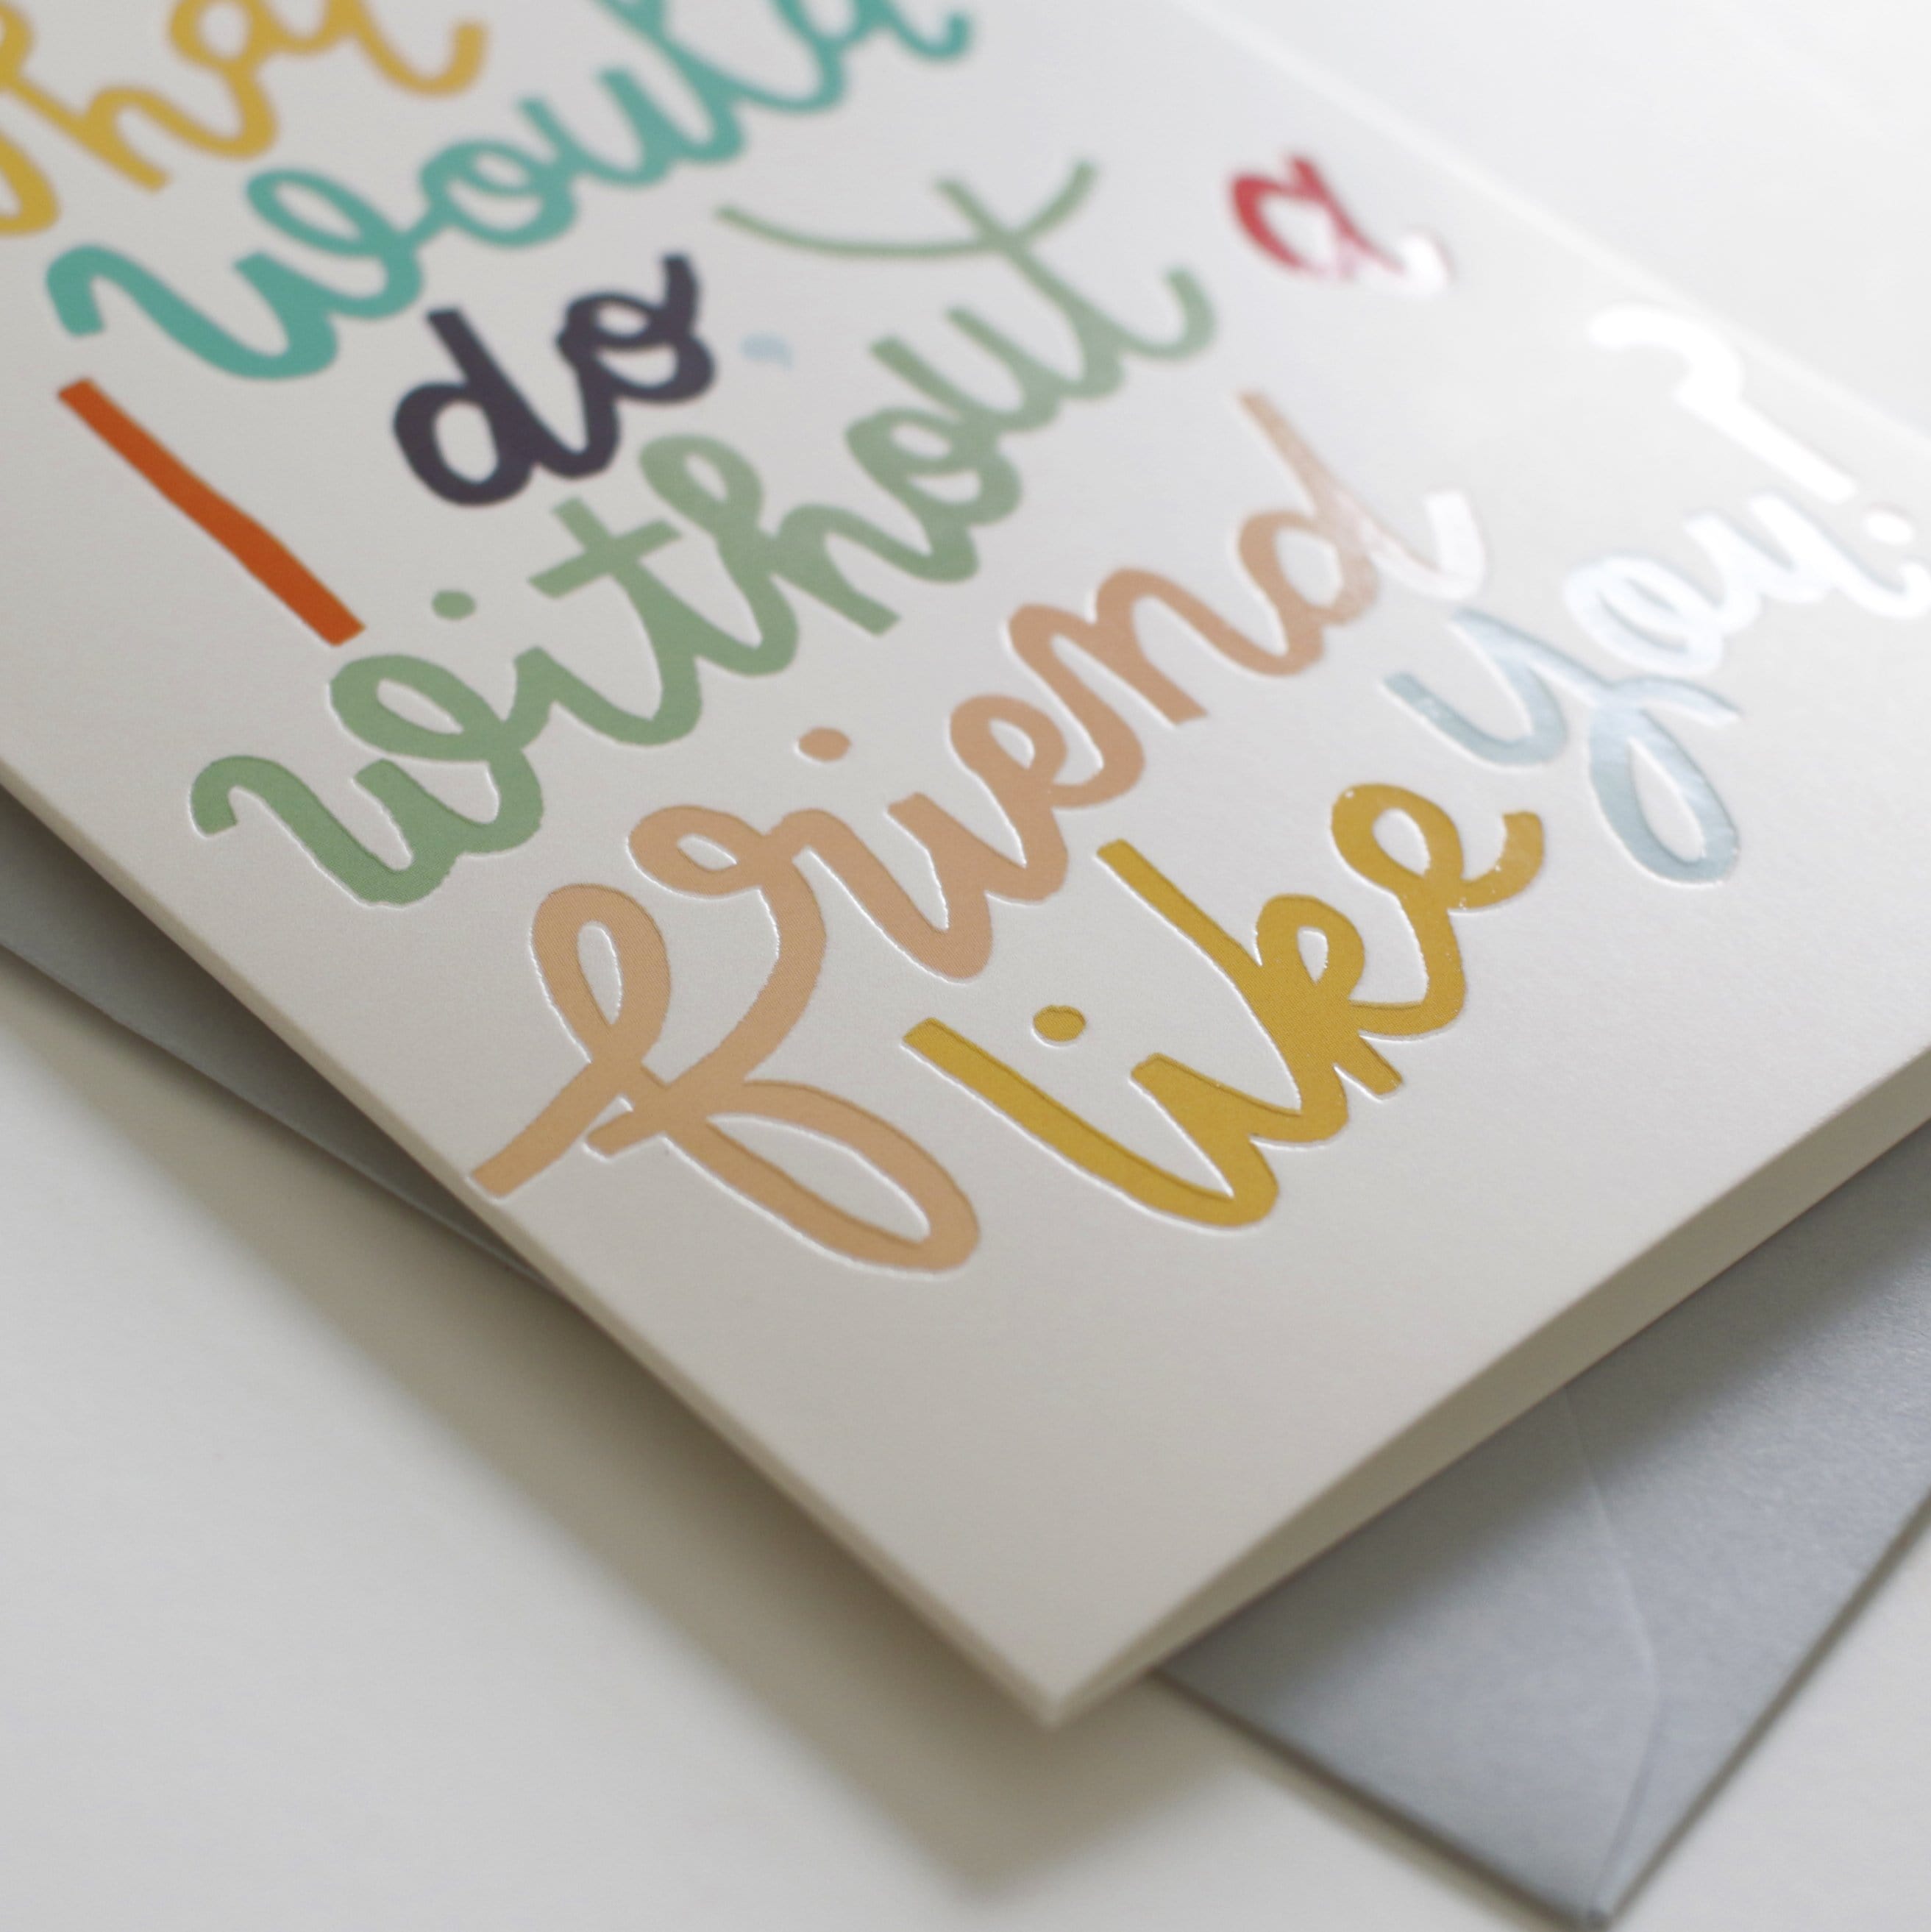 What
would
I do
without a
friend
like you?